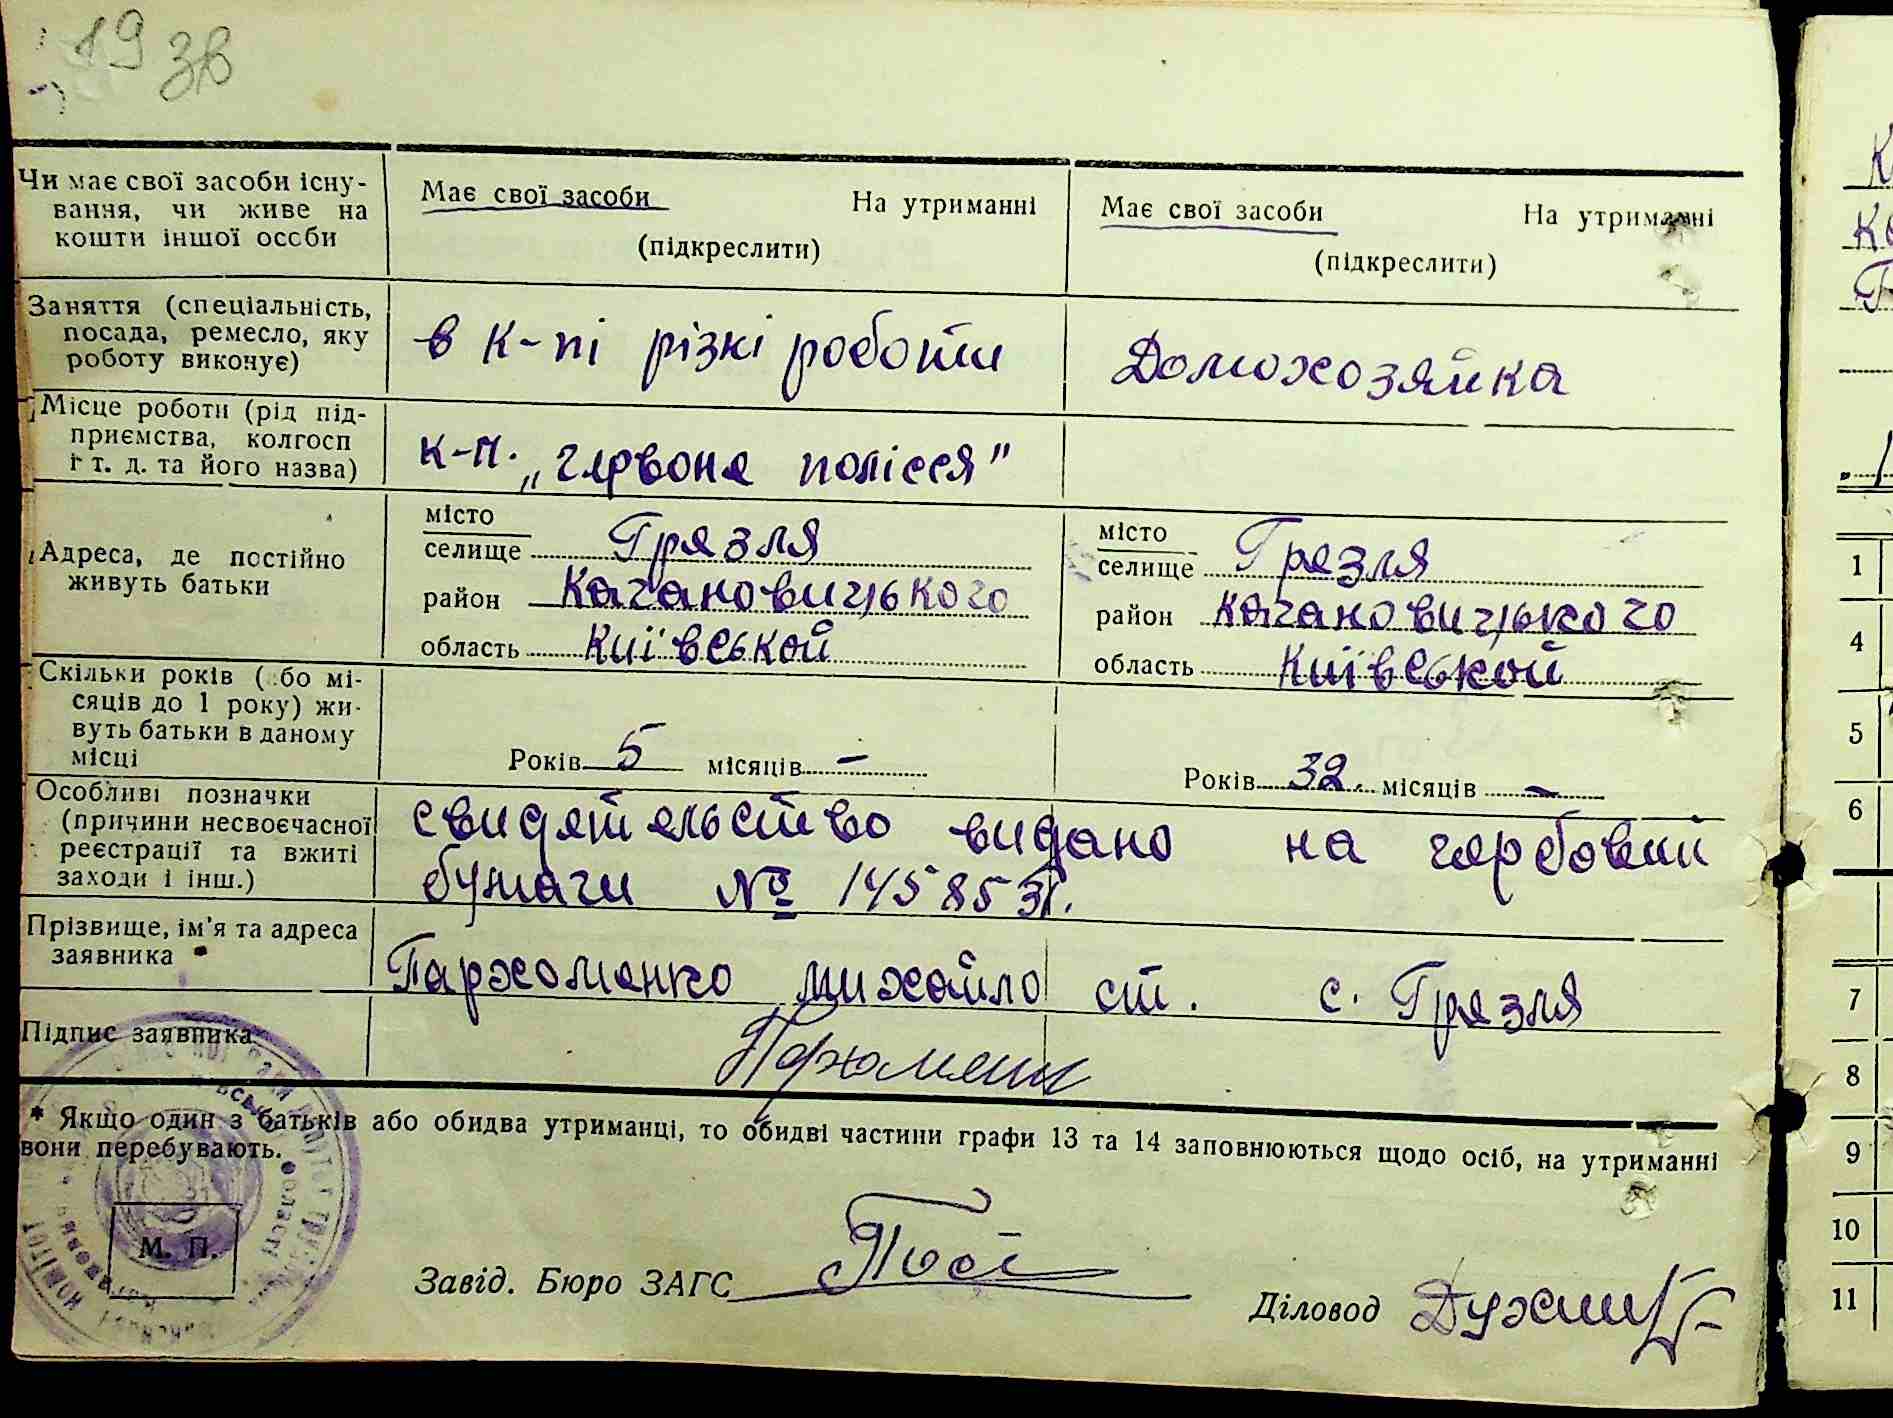 19 зв
Чи має свої засоби існу-
вання, чи живе на
кошти іншої особи
Має свої засоби На утриманні
(підкреслити)
Має свої засоби На утриманні
(підкреслити)
Заняття (спеціальність,
посада, ремесло, яку
роботу виконує)
в к-пі різкі роботи
Домохозяйка
Місце роботи (рід під-
приємства, колгосп
і т. д. та його назва)
к-п. „червоне полісся"
Адреса, де постійно
живуть батьки
місто
селище Грязля
район Кагановицького
область Київської
місто
селище Грезля
район Кагановицького
область Київської
Скільки років ( бо мі-
сяців до 1 року) жи-
вуть батьки в даному
місці
Років 5 місяців –
Років 32. місяців –
Особливі позначки
(причини несвоєчасної
реєстрації та вжиті
заходи і інш.)
свидетельство видано на гербовий
бумаги № 145853
Прізвище, ім'я та адреса
заявника
Пархоменко михайло ст. с. Грязля
Підпис заявника
* Якщо один з батьків або обидва утриманці, то обидві частини графи 13 та 14 заповнюються щодо осіб, на утриманні
вони перебувають.
М. П.
Завід. Бюро ЗАГС
Діловод
1
4
5
6
7
8
9
10
11